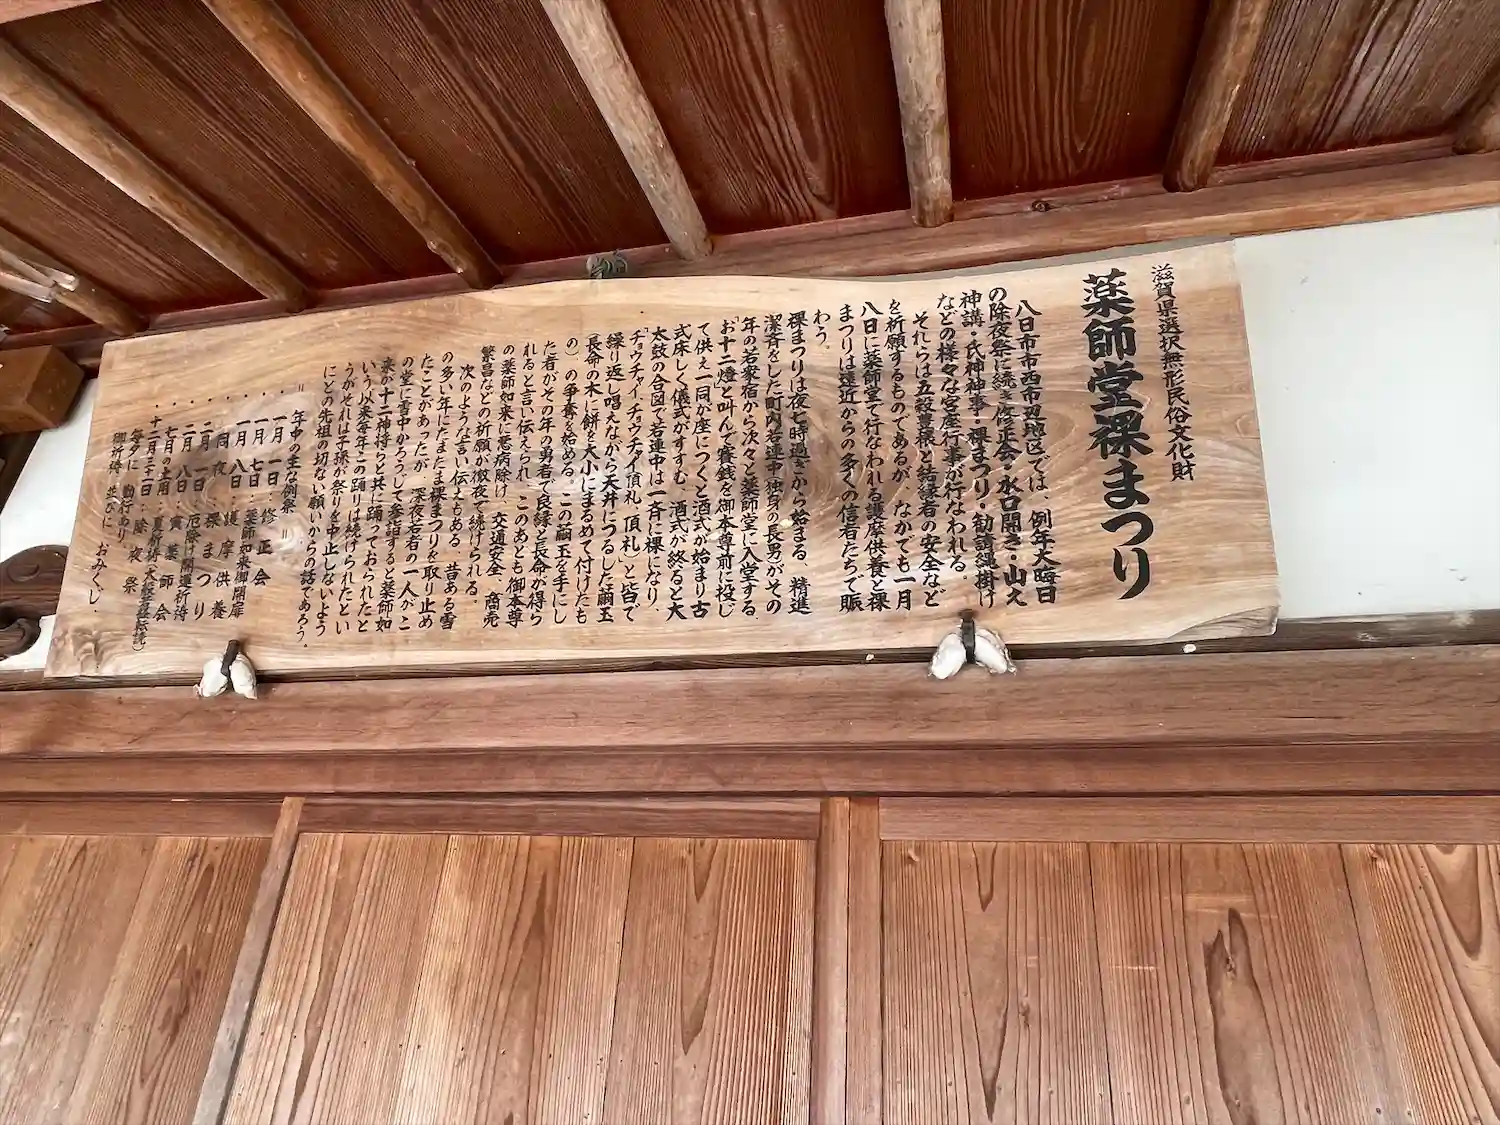 滋賀県選択無形民俗文化財
薬師堂裸まつり
八日市市西市辺地区では、例年大晦日
の除夜祭に続き修正会・水口開き・山之
神講・氏神神事・裸まつり・勧請縄掛け
などの様々な宮座行事が行なわれる。
それらは五穀豊穣と結縁者の安全など
を祈願するものであるが、なかでも一月
八日に薬師堂で行なわれる護摩供養と裸
まつりは遠近からの多くの信者たちで賑
わう。
裸まつりは夜七時過ぎから始まる、精進
潔斉をした町内若連中(独身の長男)がその
年の若衆宿から次々と薬師堂に入堂する。
「お十二燈」と叫んで賽銭を御本尊前に投じ
て供え一同が座につくと酒式が始まり古
式床しく儀式がすすむ、酒式が終ると大
太鼓の合図で若連中は一斉に裸になり、
「チョウチャイ、チョウチャイ頂礼、頂礼」と皆で
繰り返し唱えながら天井につるした繭玉
(長命の木に餅を大小にまるめて付けたも
の)の争奪を始める。この繭玉を手にし
た者がその年の勇者で良縁と長命が得ら
れると言い伝えられ、このあとも御本尊
の薬師如来に悪病除け、交通安全、商売
繁昌などの祈願が徹夜で続けられる。
次のような言い伝えもある、昔ある雪
の多い年にたまたま裸まつりを取り止め
たことがあったが、深夜若者の一人がこ
の堂に雪中かろうじて参詣すると薬師如
来が十二神将らと共に踊っておられたと
いう以来毎年この踊りは続けられたとい
うがそれは子孫が祭りを中止しないよう
にとの先祖の切ない願いからの話であろう。
〃 年中の主な例祭 〃
・一月 一日：修正会
・一月 七日：薬師如来御開扉
・一月 八日：護摩供養
・同 夜：裸まつり
・二月 一日：厄除け開運祈祷
・二月 八日：寅薬師会
・七月の土用：夏祈祷(大般若経転読)
・十二月三十一日：除夜祭
毎夕に 勤行あり。
御祈祷 並びに おみくじ。